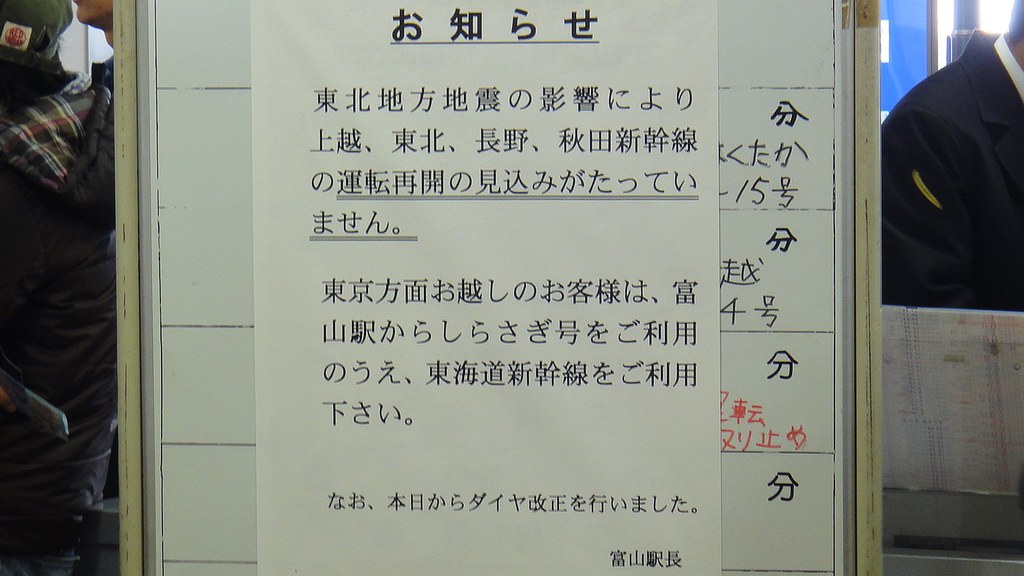 お知らせ
東北地方地震の影響により
上越、東北、長野、秋田新幹線
の運転再開の見込みがたってい
ません。
東京方面お越しのお客様は、富
山駅からしらさぎ号をご利用
のうえ、東海道新幹線をご利用
下さい。
なお、本日からダイヤ改正を行いました。
富山駅長
分
くたか
15号
分
越
4号
分
転
取り止め
分